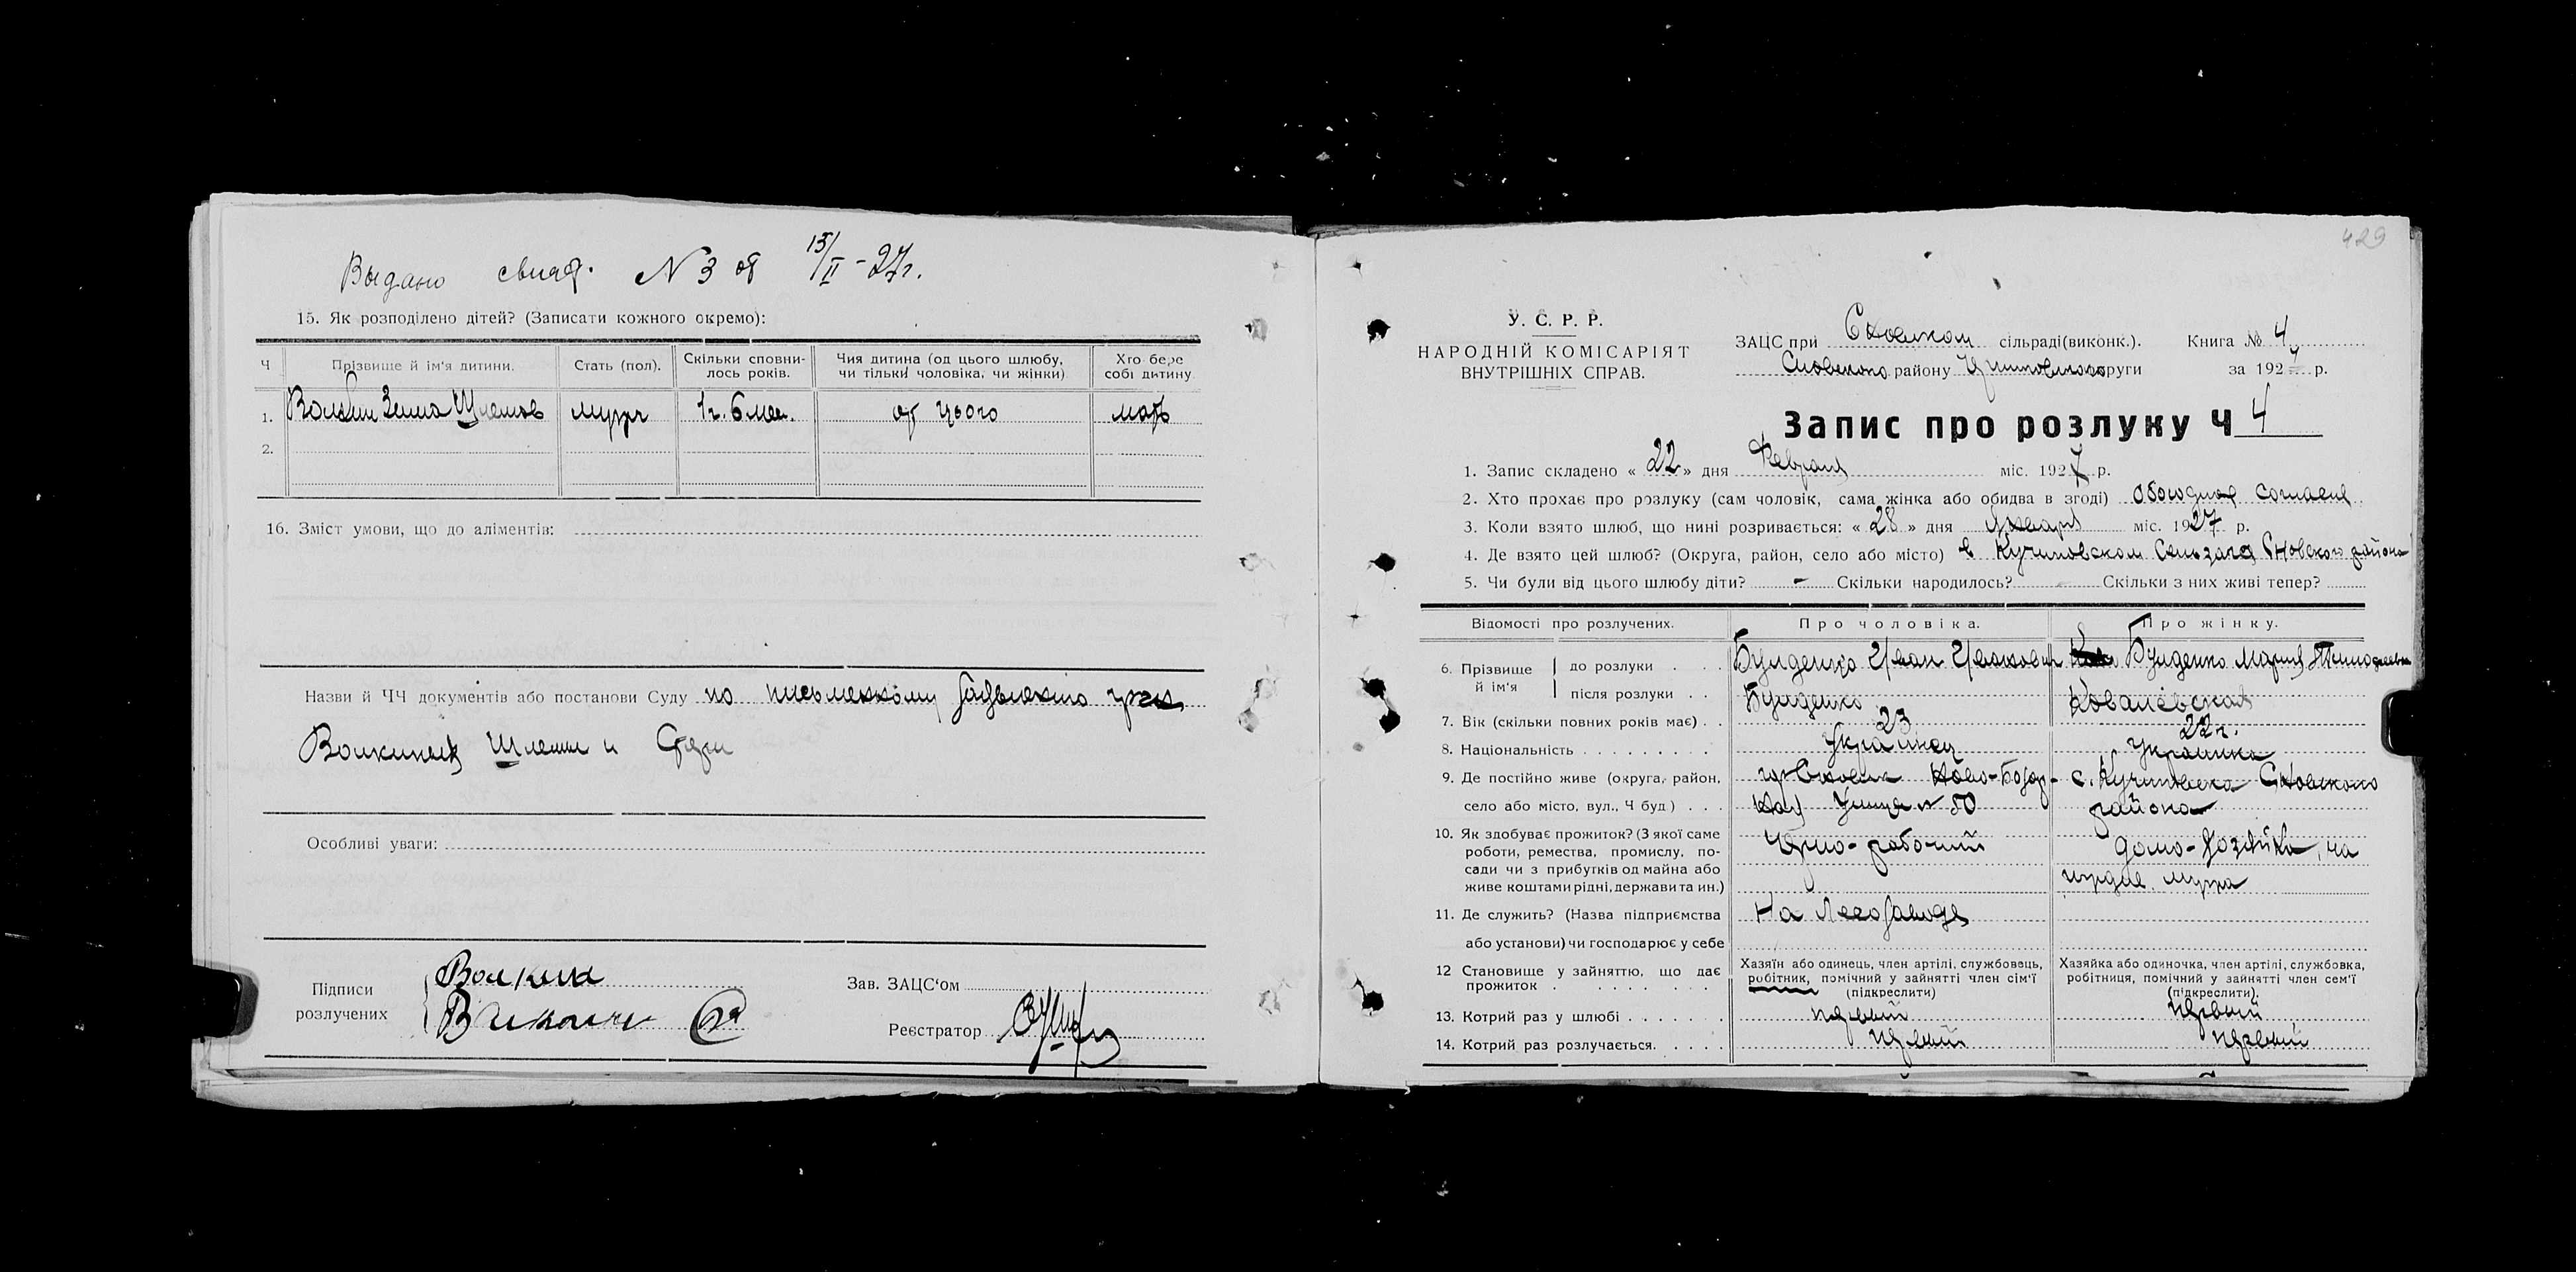 Выдано свид. N 3 от 15/II - 27г.
15. Як розподілено дітей? (Записати кожного окремо):
Ч | Прізвище й ім'я дитини. | Стать (пол). | Скільки сповнилось років. | Чия дитина (од цього шлюбу, чи тільки чоловіка, чи жінки) | Хто бере собі дитину
1. | Волкин Зяма Шлемов | мужч | 1г. 6 мес. | от цього | мать
2.
16. Зміст умови, що до аліментів:
Назви й ЧЧ документів або постанови Суду по письменному
Волкиных Шлемы и
Особливі уваги:
Підписи розлучених
Волкин
Зав. ЗАЦС'ом
Реєстратор
429
У. С. Р. Р.
НАРОДНІЙ КОМІСАРІЯТ
ВНУТРІШНІХ СПРАВ.
ЗАЦС при Сновском сільраді(виконк.). Книга № 4
Сновского району округи за 1927 р.
Запис про розлуку Ч 4
1. Запис складено « 22 » дня Февраля міс. 1927 р.
2. Хто прохає про розлуку (сам чоловік, сама жінка або обидва в згоді) согласия
3. Коли взято шлюб, що нині розривається: « 28 » дня Января міс. 1927 р.
4. Де взято цей шлюб? (Округа, район, село або місто) в Кучиновском Сельзагсе Сновского района
5. Чи були від цього шлюбу діти? - Скільки народилось? Скільки з них живі тепер?
Відомості про розлучених. | Про чоловіка. | Про жінку.
6. Прізвище й ім'я до розлуки . . . | Бумденко Иван Иванович | Бумденко Мария Тимофеевна
після розлуки . . | Бумденко | Ковалевская
7. Вік (скільки повних років має) . . | 23 | 22г.
8. Національність . . . . . . . . . | Украинец | Украинка
9. Де постійно живе (округа, район, | гор Сновск Ново-Базар- | с. Кучиновка Сновского
село або місто, вул., Ч буд) . . . | ная Улица № 50 | района
10. Як здобуває прожиток? (З якої саме | Черно-рабочий | домо-хозяйка, на
роботи, ремества, промислу, по-
сади чи з прибутків од майна або | мужа
живе коштами рідні, держави та ин.)
11. Де служить? (Назва підприємства | на Лесозаводе
або установи) чи господарює у себе
12 Становище у зайняттю, що дає прожиток . . . . . . . | Хазяїн або одинець, член артілі, службовець, робітник, помічний у зайнятті член сім'ї (підкреслити) | Хазяйка або одиночка, член артілі, службовка, робітниця, помічний у зайнятті член сем'ї (підкреслити).
13. Котрий раз у шлюбі . . . . . . . | первый | первый
14. Котрий раз розлучається. . . . . | первый | первый